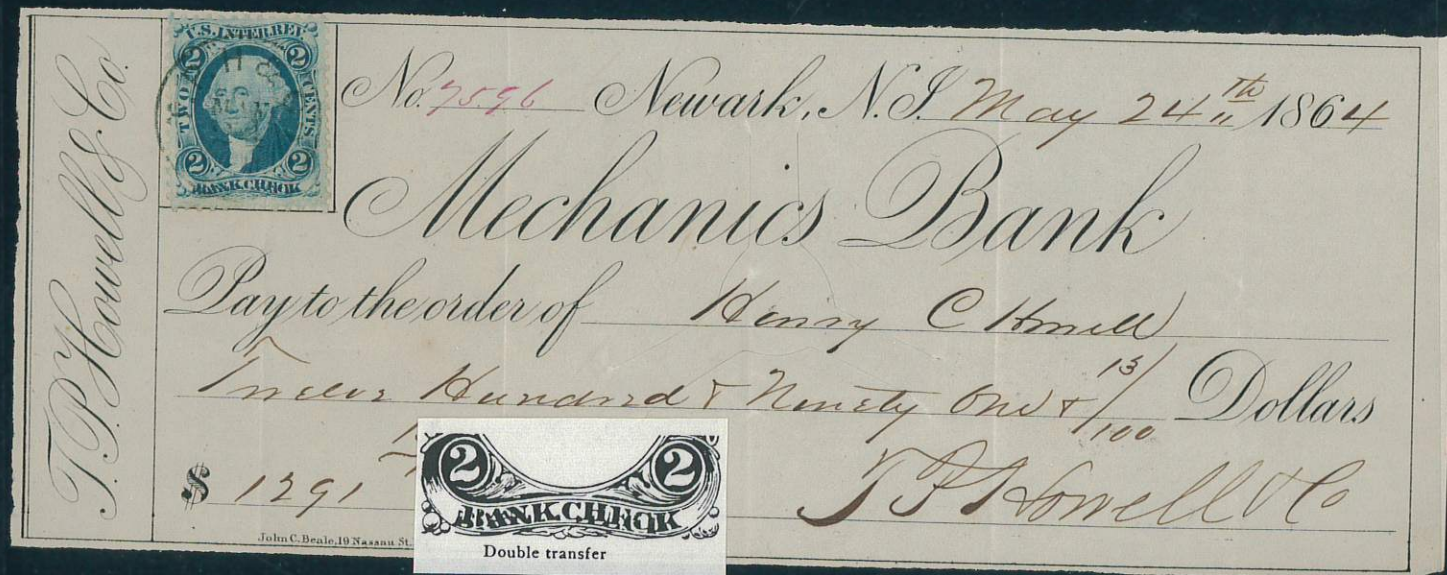 T.P. Howell & Co.
U.S. INTER. REV.
2 2
TWO CENTS
2 2
BANK CHECK
No. 7596 Newark, N.J. May 24th 1864
Mechanics Bank
Pay to the order of Henry C Howell
Twelve Hundred & Ninety One & 13/100 Dollars
$ 1291
T P Howell & Co
John C. Beale, 19 Nassau St.
2 2
BANK CHECK
Double transfer